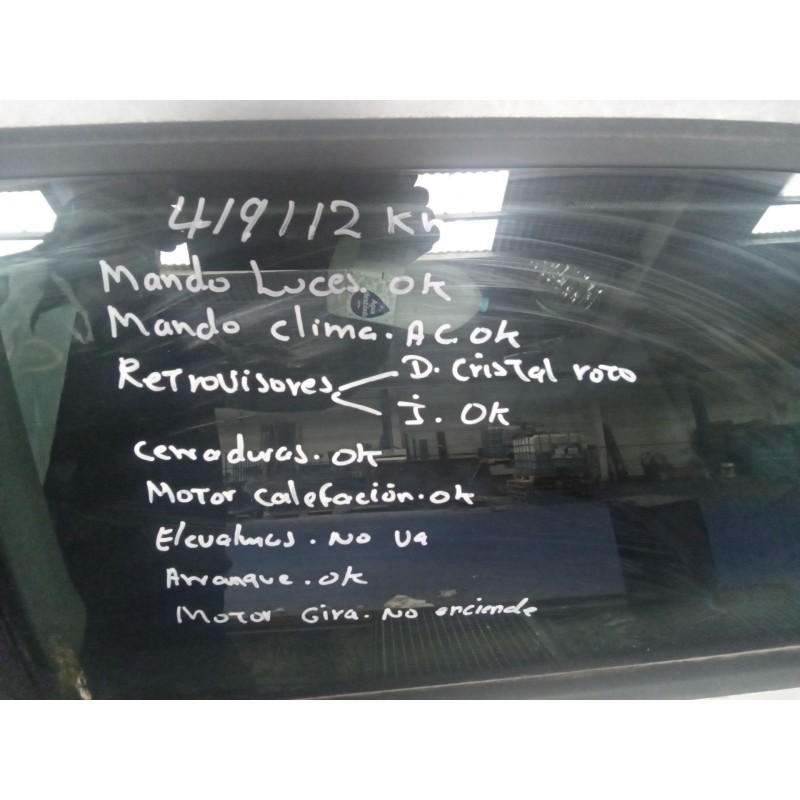 419112 Km
Mando Luces. OK
Mando clima. AC. OK
Retrovisores
D. Cristal roto
i. OK
Cerraduras. OK
Motor Calefación. ok
Elevalunas. No va
Arranque. ok
Motor Gira. No enciende